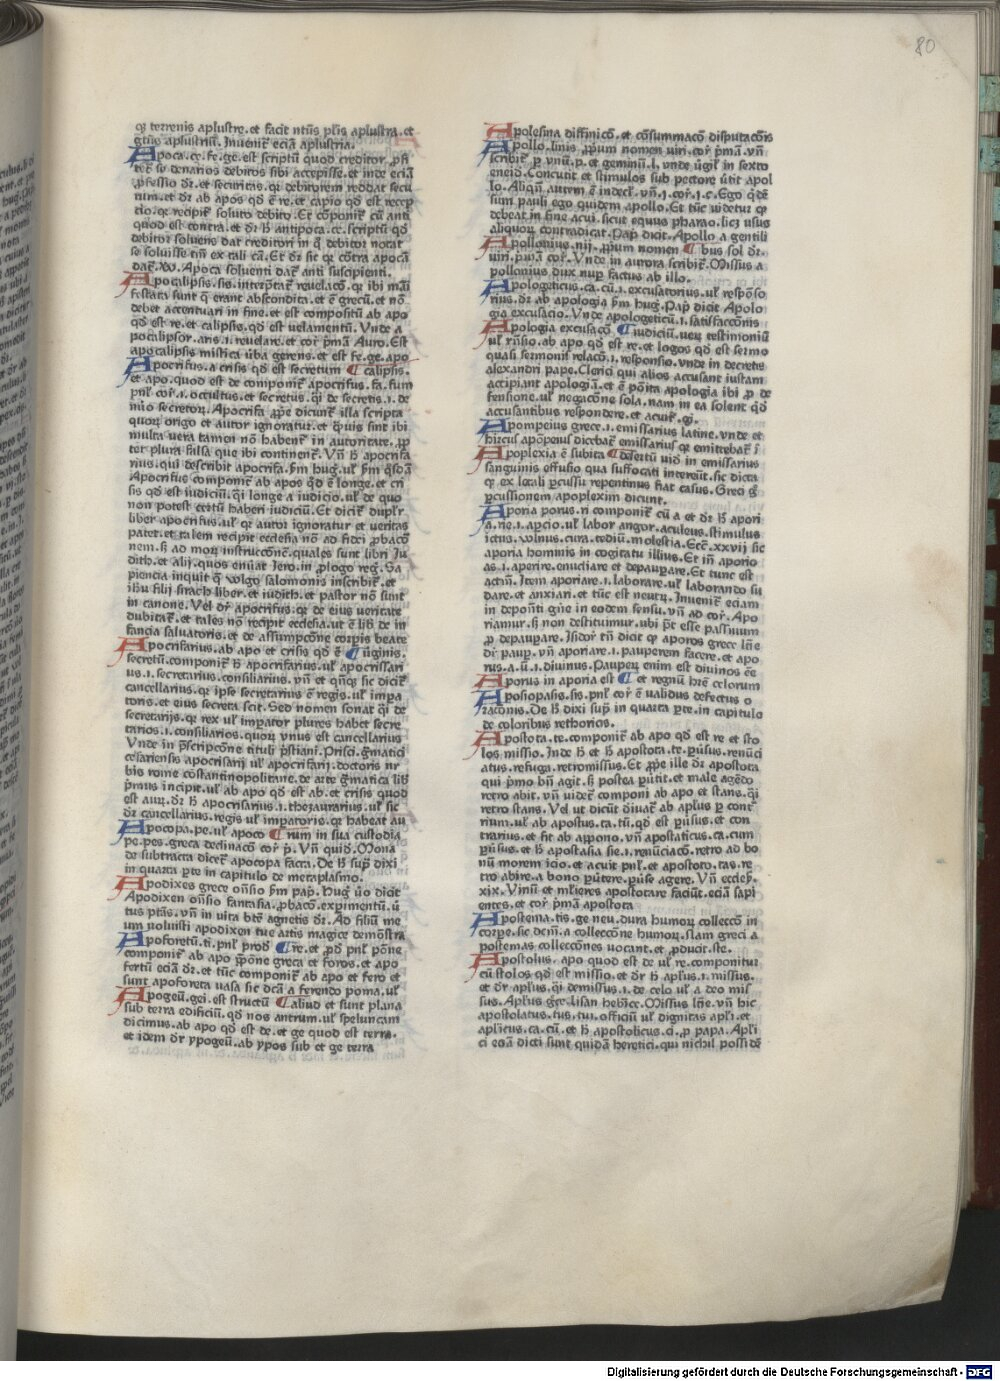 80
qꝫ terrenis aplustre.et facit ntūs pl̄is aplustra.et
gtūs aplustriū. Inuenit̄ eciā aplustria.
Apoca.ce.fe.ge.est scriptū quod creditor
debitos sibi accepisse.et inde eciā
et securitas. qꝫ debitorem reddat secu
rum.et dr̄ ab apos qd̄ ē re.et capio qd̄ est recep
debito. Et cōponit̄ cū anti
quod est contra.et dr̄ h̄ antipoca.ce.scriptū qd̄
debitor soluens dat creditori in q̄ debitor notat
se soluisse
Apoca soluenti dat̄ anti suscipienti.
Apocalipsis.sis.interptat̄ reuelacō. qꝫ ibi mani
festata sunt q̄ erant abscondita.et ē grecū.et nō
debet accentuari in fine.et est compositū ab apo
qd̄ est re.et calipsis.qd̄ est uelamentū. Vnde a
pocalipsor.aris.i.reuelare.et cor̄ p̄mā Auro. Est
apocalipsis mistica ūba gerens.et est fe.ge.apo
Apocrifus.a crisis qd̄ est secretum ¶ calipsis.
et apo.quod est de componit̄ apocrifus.fa.fum
pnl̄ cor̄.i.occultus.et secretus.qi de secretis.i.de
Apocrifa ꝓpe dicunt̄ illa scripta
origo et autor ignoratur.et
multa uera tamen nō habent̄ in autoritate.ꝓp
ter plura falsa que ibi continent̄. Vn̄ h̄ apocrifa
rius.qui describit apocrifa
Apocrifus componit̄ ab apos qd̄ ē longe.et cri
sis qd̄ est iudiciū.qi longe a iudicio.ul̄ de quo
non potest certū haberi iudiciū. Et dicit̄ dupl̄r
liber apocrifus.ul̄ qꝫ autor ignoratur et veritas
patet.et talem recipit ecclesia nō ad fidei ꝓbacō
nem.sꝫ ad moꝝ instruccōnē.quales sunt libri Ju
dith.et alij.quos enūat Jero.in ꝓlogo reg. Sa
piencia inquit q̄ volgo salomonis inscribit̄.et
ihu filij sirach liber.et iudith.et pastor nō sunt
in canone. Vel dr̄ apocrifus.qꝫ de eius veritate
dubitat̄.et tales nō recipit ecclesia.ut ē lib̄ de in
fancia saluatoris.et de assumpcōne corpis beate
Apocrisarius.ab apo et crisis qd̄ ē ¶ uirginis.
secretū.componit̄ h̄ apocrisarius.ul̄ apocrissari
us.i.secretarius.consiliarius.
cancellarius.qꝫ ipse secretarius ē regis.ul̄ impa
toris.et eius secreta scit. Sed nomen sonat qi de
secretarijs.qꝫ rex ul̄ impator plures habet secre
tarios.i.consiliarios.quoꝝ vnus est cancellarius
Vnde in p̄scripcōne tituli p̄stiani. Prisci.gm̄atici
cesariensis apocrisarij ul̄ apocrisarij.doctoris vr
bis rome cōstantinopolitane.de arte gm̄atica lib̄
p̄mus incipit.ul̄ ab apo qd̄ est ab.et crisis quod
est aur. dr̄ h̄ apocrisarius.i.thezaurarius.ul̄ sic
dr̄ cancellarius.regis ul̄ impatoris.qꝫ habeat au
Apocopa.pe.ul̄ apoco ¶ rum in sua custodia
pe.pes.greca declinacō cor̄ p̄.
de subtracta apocopa facta. De h̄ sup̄ dixi
in quarta pte in capitulo de metaplasmo.
Apodixes grece on̄sio pap. Hug. ūo dicit
Apodixen on̄sio fantasia.ꝓbacō.expimentū.ū
tus vn̄ in uita bte agnetis dr̄. Ad filiū me
um noluisti apodixen tue artis magice demōstra
Apoforetū.ti.pnl̄ prod̄ ¶ re.et ꝓd̄ pnl̄ pōne
componit̄ ab apo ꝓpōne greca et foros.et apo
fertū eciā dr̄.et tūc componit̄ ab apo et fero et
sunt apoforeta uasa sic dcā a ferendo poma.ul̄
Apogeū.gei.est structū ¶ aliud et sunt plana
sub terra edificiū.qd̄ nos antrum.ul̄ speluncam
dicimus.ab apo qd̄ est de.et ge quod est terra.
et idem dr̄ ypogeū.ab ypos sub et ge terra
Apolesina diffinicō.et cōsummacō disputacōis
Apollo.linis.ꝓpium nomen uiri.cor̄ p̄mā.vn̄
scribit̄ p vnū.p.et geminū.l. vnde ūgil̄ in sexto
eneid. Concutit et stimulos sub pectore ūtit apol
lo. Aliqn̄ autem ē indecl̄.
sum pauli ego quidem apollo. Et tūc uidetur qꝫ
debeat in fine acui.sicut equus pharao.licꝫ usus
aliquoꝝ contradicat. Pap̄ dicit. Apollo a gentili
Apollonius.nij.ꝓpium nomen ¶ bus sol dr̄.
uiri.p̄mā cor̄. Vnde in aurora scribit̄. Missus a
pollonius dux nup factus ab illo.
Apologeticus.ca.cū.i.excusatorius.ul̄ respōso
rius.dr̄ ab apologia hug. Pap̄ dicit Apolo
gia excusacio. Vnde apologeticū.i.satisfaccōnis
Apologia excusacō. ¶ iudiciū.ueꝝ testimoniū
ul̄ rn̄sio.ab apo qd̄ est re.et logos qd̄ est sermo
quasi sermonis relacō.i.responsio.vnde in decretis
alexandri pape. Clerici qui alios accusant iustam
accipiant apologiā.et ē pōita apologia ibi ꝓ de
fensione.ul̄ negacōne sola.nam in ea solent qd̄
accusantibus respondere.et acuit̄.gi.
Apompeius grece.i.emissarius latine.vnde et
hircus apōpeius dicebat̄ emissarius qꝫ emittebat̄ ī
Apoplexia ē subita ¶ desertū in emissarius
sanguinis effusio qua suffocati intereūt.sic dicta
qꝫ ex letali ꝑcussu repentinus fiat casus. Greci
ꝑcussionem apoplexim dicunt.
Aporia porus.ri componit̄ cū a et dr̄ h̄ apori
a.rie.i.apcio.ul̄ labor angor.aculeus.stimulus
ictus.volnus.cura.tediū.molestia. Ecc̄. xxvij sic
aporia hominis in cogitatu illius. Et in̄ aporio
as.i.aperire.enucliare et depauꝑare. Et tunc est
actm̄. Item aporiare.i.laborare.ul̄ laborando su
dare.et anxiari.et tūc est neutꝝ. Inuenit̄ eciam
in deponti gn̄e in eodem sensu.vn̄ ad cor̄. Apo
riamur.sꝫ non destituimur.ubi esse passiuum
ꝓ depauꝑare. Isidor̄ tn̄ dicit qꝫ aporos grece ln̄e
dr̄ paup̄.vn̄ aporiare.i.pauperem facere.et apo
rus.a.ū.i.diuinus. Pauperū enim est diuinos ēe
Aporus in aporia est ¶ et regnū hīre celorum
Aposiopasis.sis.pnl̄ cor̄ ē ualidus defectus o
racōnis. De h̄ dixi sup̄ in quarta pte.in capitulo
de coloribus rethoricis.
Apostota.te.componit̄ ab apo qd̄ est re et sto
los missio. Inde h̄ et h̄ apostota.te.ꝑūsus.renūci
atus.refuga.retromissus. Et ꝓpe ille dr̄ apostota
qui p̄mo bn̄ agit.sꝫ postea ꝑūtit.et male agēdo
retro abit.vn̄ uidet̄ componi ab apo et stans.qi
retro stans. Vel ut dicūt diuat̄ ab aplus p cont̄
rium.ul̄ ab apostus.ta.tū.qd̄ est ꝑūsus.et con
trarius.et fit ab appono.vn̄ apostaticus.ca.cum
ꝑūsus.et h̄ apostasia sie.i.renūciacō.retro ad bo
nū morem icio.et acuit pnl̄.et apostoto.tas.re
tro abire.a bono ꝑūtere.ꝑūse agere. Vn̄ eccles.
xix. Vinū et mlieres apostotare faciūt.eciā sapi
entes.et cor̄ p̄mā apostota
Apostema.tis.ge neu.dura humoꝝ colleccō in
corpe.sic dcm̄.a colleccōne humoꝝ.nam greci a
postemas colleccōnes uocant.et ꝓducit.ste.
Apostolus.apo quod est de ul̄ re.componitur
cū stolos qd̄ est missio.et dr̄ h̄ aplus.i.missus.
et dr̄ aplus.qi demissus.i.de celo ul̄ a deo mis
sus. Aplus gr̄ce.lisan hebr̄ice. Missus ln̄e.vn̄ hic
apostolatus.tus.tui.officiū ul̄ dignitas apl̄i.et
apl̄icus.ca.cū.et h̄ apostolicus.ci.ꝓ papa. Apl̄i
ci eciā dicti sunt quidā heretici.qui nichil possidē
Digitalisierung gefördert durch die Deutsche Forschungsgemeinschaft - DFG